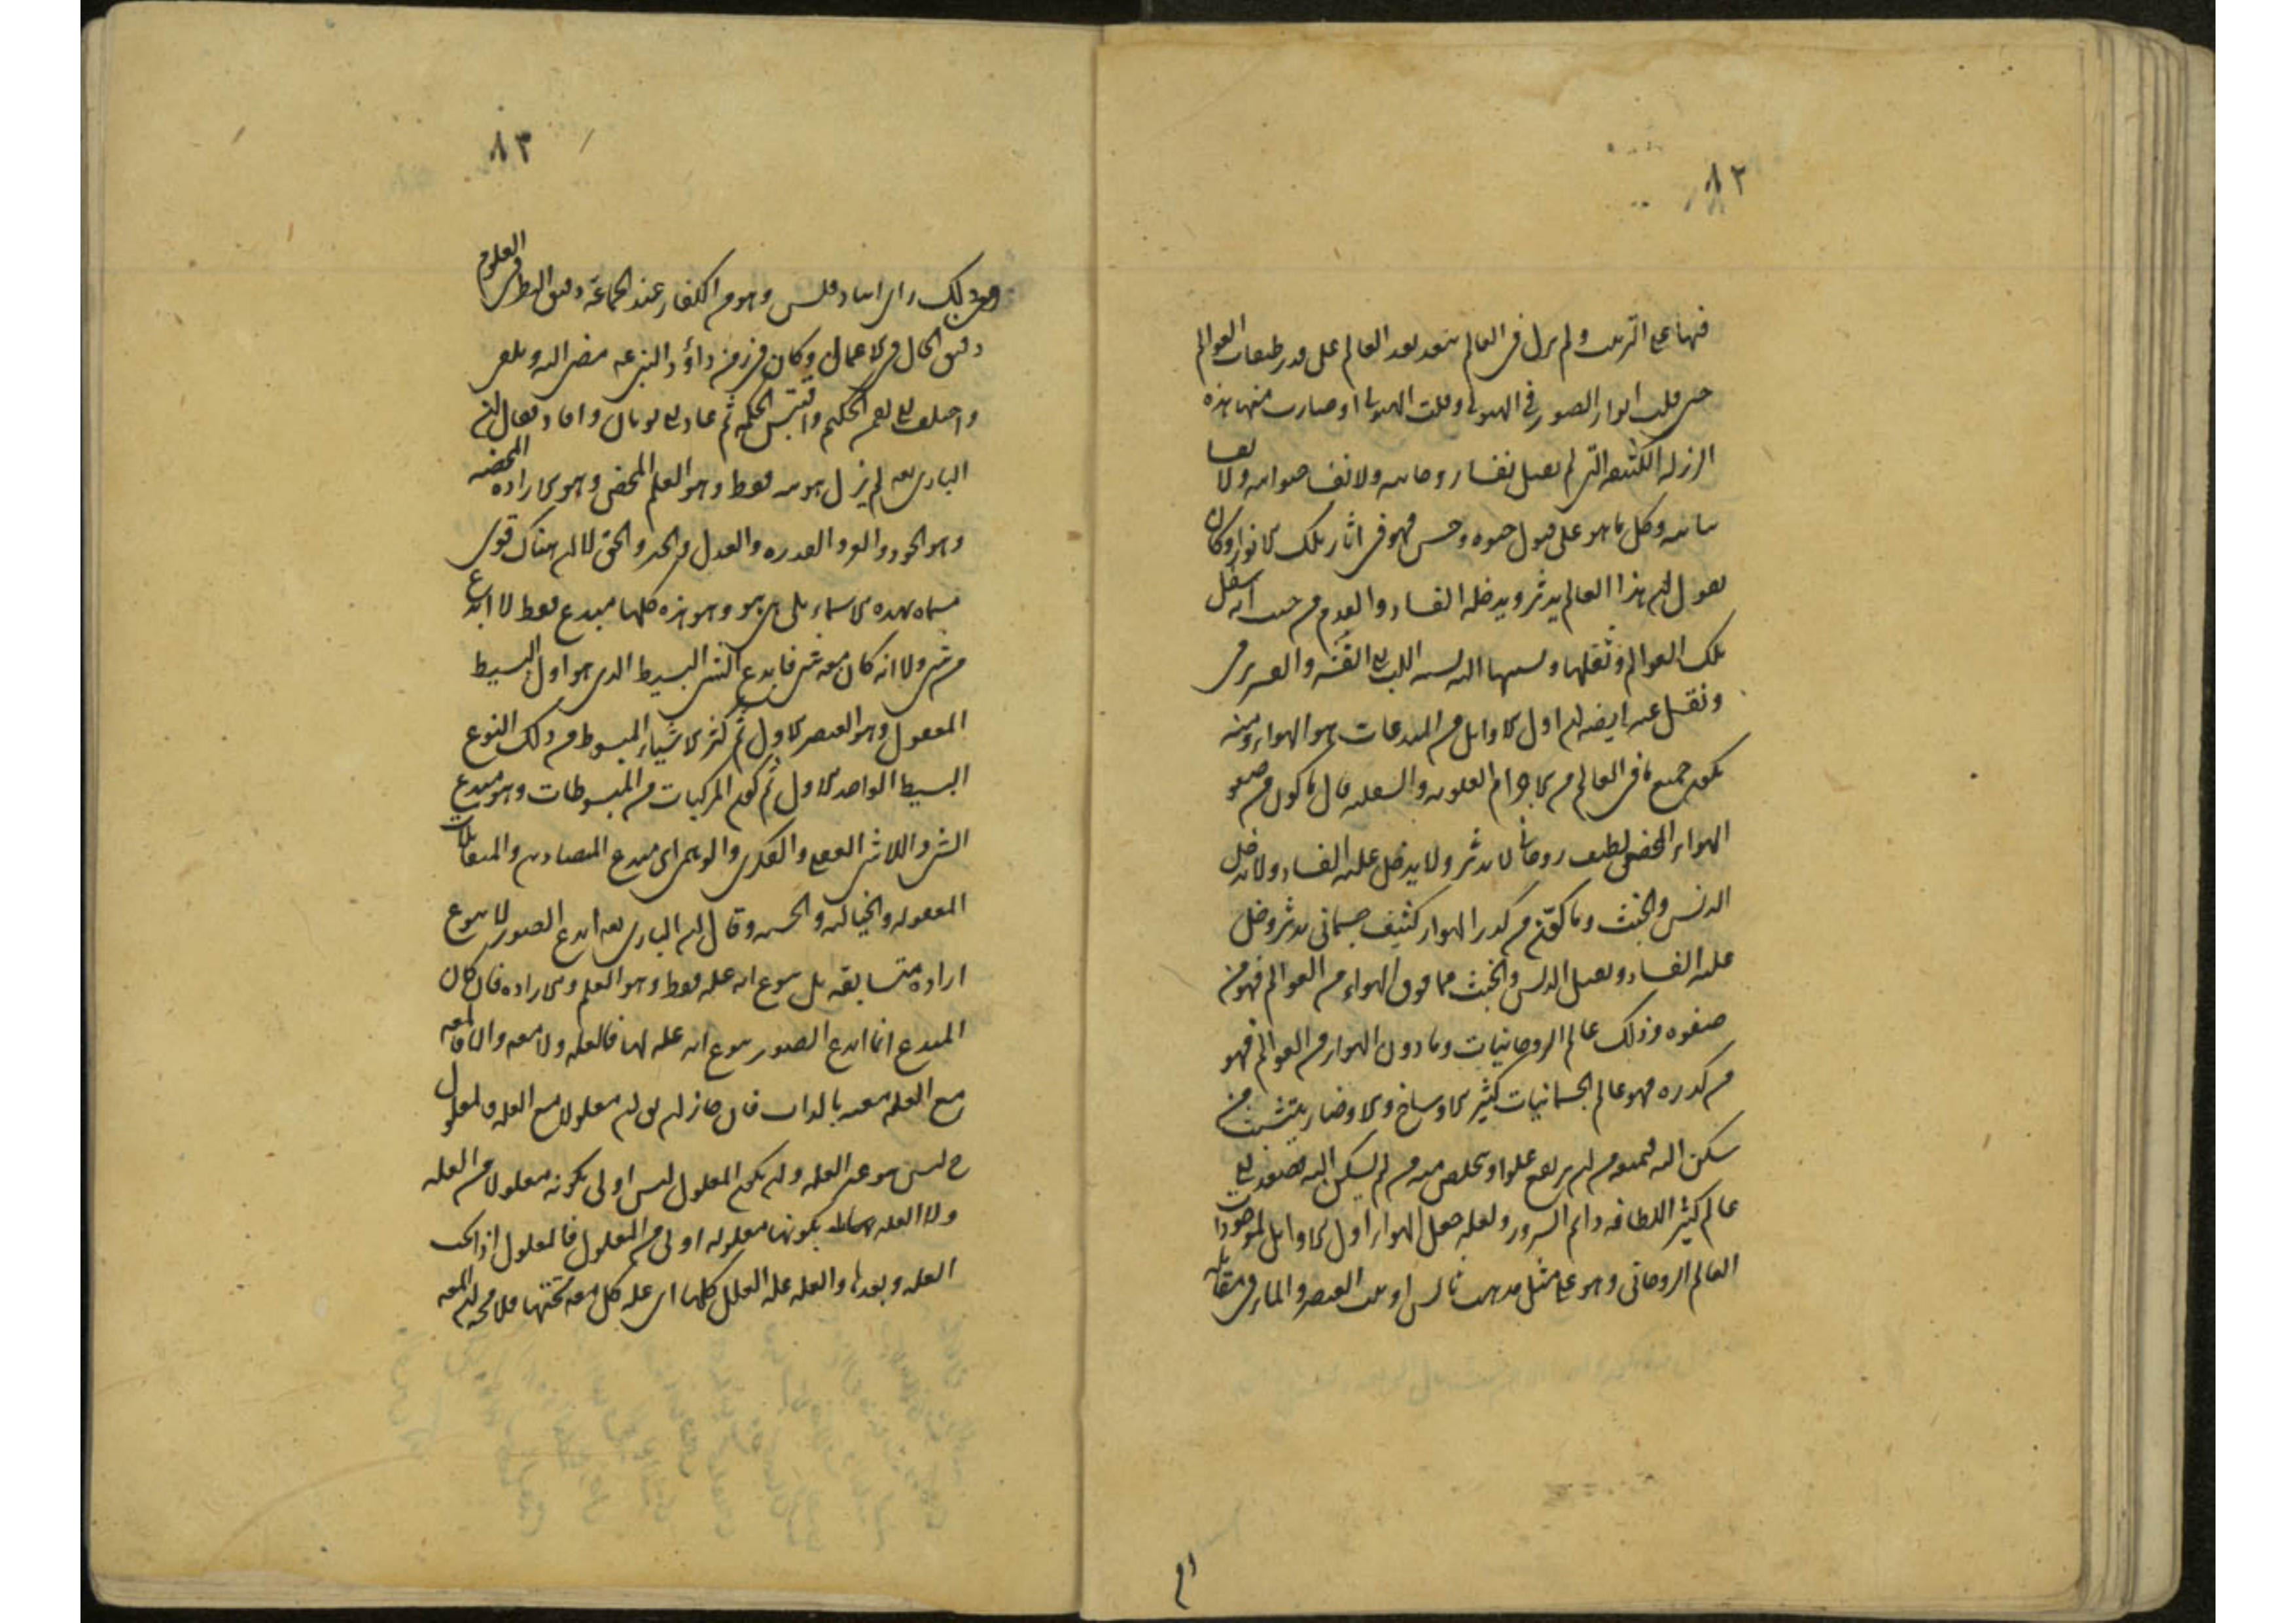 ٨٢
فيها على الترتيب ولم يزل في العالم بعد العالم على قدر طبقات العوالم
حتى قلت انوار الصور في الهيولى وقلت الهيولى وصارت منها هذه
الرذلة الكثيفة التي لم تقبل نفسا روحانية ولا نفسا حيوانية ولا
نباتية وكل ما هو على قبول حيوة وحس فهو في اثار تلك الانوار وكان
يقول ان هذا العالم يدثر ويدخله الفساد والعدم من حيث انه سفل
تلك العوالم وثقلها ونسبتها اليه نسبة اللب الى القشر والقشر يرمى
ونقل عنه ايضا ان اول الاوايل من المبدعات هو الهواء ومنه
تكون جميع ما في العالم من الاجرام العلوية والسفلية قال ما كون من صفو
الهواء المحض لطيف روحاني لا يدثر ولا يدخل عليه الفساد ولا يقبل
الدنس والخبث وما كون من كدر الهواء كثيف جسماني يدثر ويدخل
عليه الفساد ويقبل الدنس والخبث فما فوق الهواء من العوالم فهو من
صفوه وذلك عالم الروحانيات وما دون الهواء من العوالم فهو
من كدره فهو عالم الجسمانيات كثير الاوساخ والاوضار يتشبث من
سكن اليه فيمنعه من ان يرتفع علوا ويتخلص منه من لم يسكن اليه فيصعد الى
عالم كثير اللطافة دايم السرور ولعله جعل الهواء اول الاوايل لموجودات
العالم الروحاني وهو على مثل مذهب ثاليس اذ اثبت العنصر والماء في مقابلته
٨٣
ومن ذلك راي انبادقلس وهو من الكفار عند الجماعة دقيق النظر في العلوم
دقيق الحال في الاعمال وكان في زمن داؤد النبي عه مضى اليه وتلقى
واختلف الى لقمن الحكيم واقتبس الحكمة ثم عاد الى يونان وافاد فقال ان
الباري تعه لم يزل هويته فقط وهو العلم المحض وهو الارادة المحضه
وهو الجود والعز والقدرة والعدل والخير والحق لا ان هناك قوى
مسماة بهذه الاسماء بل هي هو وهو هذه كلها مبدع فقط لا انه ابدع
من شي ولا انه كان معه شي فابدع الشي البسيط الذي هو اول البسيط
المعقول وهو العنصر الاول ثم كثر الاشياء المبسوطة من ذلك النوع
البسيط الواحد الاول ثم كون المركبات من المبسوطات وهو مبدع
الشي واللاشي العقلي والفكري والوهمي اي مبدع المتضادات والمتقابلات
المعقولة والخيالية والحسية وقال ان الباري تعه ابدع الصور لا بنوع
ارادة متسابقة بل بنوع انه علة فقط وهو العلم والارادة فان كان
المبدع انما ابدع الصور بنوع انه علة لها فالعلة ولا معه والا فالمعه
مع العلة معية بالذات فان جاز ان يق ان معلولا مع العلة فالمعلول
ح ليس هو غير العلة وان يكون المعلول ليس اولى بكونه معلولا من العلة
ولا العلة بكونها معلولة اولى من المعلول فالمعلول اذا تحت
العلة وبعدها والعلة علة العلل كلها اي علة كل معه تحتها فلا محة ان المعه